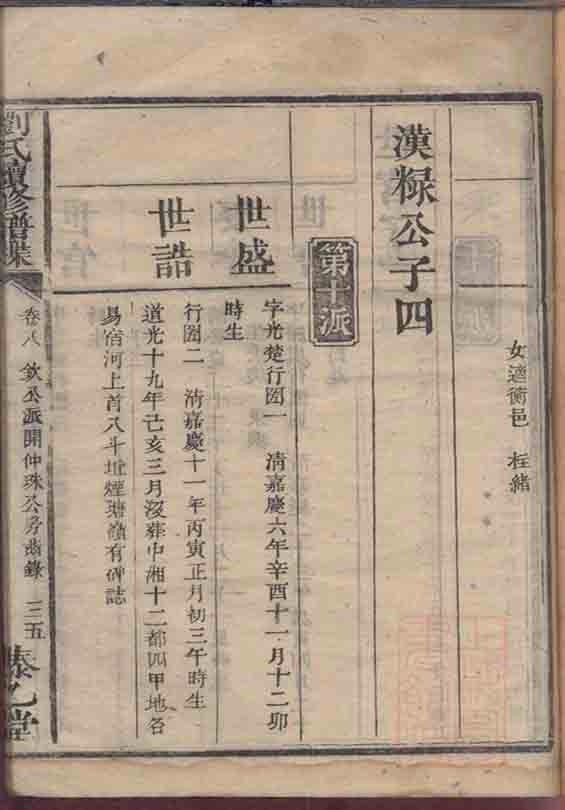 女適衡邑
漢粶公子四
第十派
世盛
字光楚行圀一 清嘉慶六年辛酉十一月十二卯
時生
世誥
行圀二 清嘉慶十一年丙寅正月初三午時生
道光十九年己亥三月歿葬中湘十二都四甲地名
易宿河上首八斗坵煙塘嶺有碑誌
劉氏續修譜集
卷八 欽公派開仲珠公房齒錄 一三五